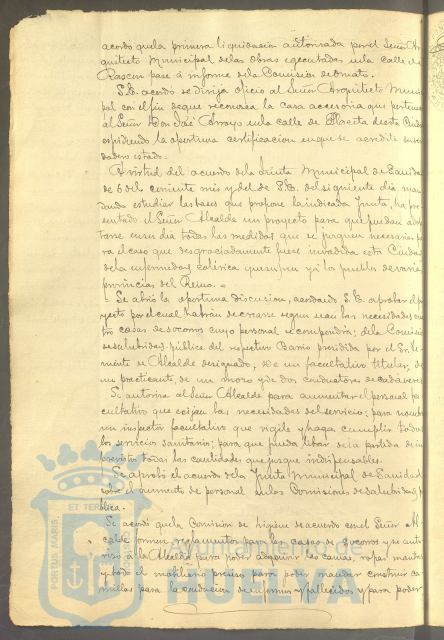 acordó que la primera liquidacion autorizada por el Señor Ar
quitecto Municipal de las obras ejecutadas en la calle de
Rascon pase á informe de la Comision de Ornato.
S.E. acordó se dirija oficio al Señor Arquitecto Munici
pal con el fin de que reconozca la casa accesoria que pertenece
al Señor Don José Arroyo en la calle de Placeta de esta Ciudad
espidiendo la oportuna certificacion en que se acredite su
dadero estado.
A virtud del acuerdo de la Junta Municipal de Sanidad
de 6 del corriente mes y del de S.E. del siguiente dia man
dando estudiar las bases que propone la indicada Junta, ha pre
sentado el Señor Alcalde un proyecto para que puedan adop
tarse en su dia todas las medidas que se juzguen necesarias pa
ra el caso que desgraciadamente fuese invadida esta Ciudad
de la enfermedad colérica que sufren ya los pueblos de varias
provincias del Reino.
Se abrió la oportuna discusion, acordando S.E. aprobar el
yecto por el cual habrán de crearse segun sean las necesidades cua
tro casas de socorros cuyo personal se compondrá; de la Comision
de salubridad pública del respectivo Barrio presidida por el Sr. Te
niente de Alcalde designado, de un facultativo titular, de
un practicante, de un mozo y de dos conductores de cadáveres
Se autoriza al Señor Alcalde para aumentar el personal fa
cultativo que exijan las necesidades del servicio; para nombrar
un inspector facultativo que vigile y haga cumplir todos
los servicios sanitarios; para que pueda librar de la partida de im
previstos todas las cantidades que juzgue indispensables.
Se aprobó el acuerdo de la Junta Municipal de Sanidad
sobre el aumento de personal en las Comisiones de salubridad pú
blica.
Se acordó que la Comision de higiene de acuerdo con el Señor Al
calde formen reglamentos para las casas de socorros y se auto
rizó á la Alcaldia para poder adquirir las camas, ropas, mantas
y todo el mobiliario preciso para poder mandar construir ca
millas para la conduccion de enfermos y fallecidos y para poder
PORTUS MARIS ET TERRAE
Ayuntamiento de
HUELVA